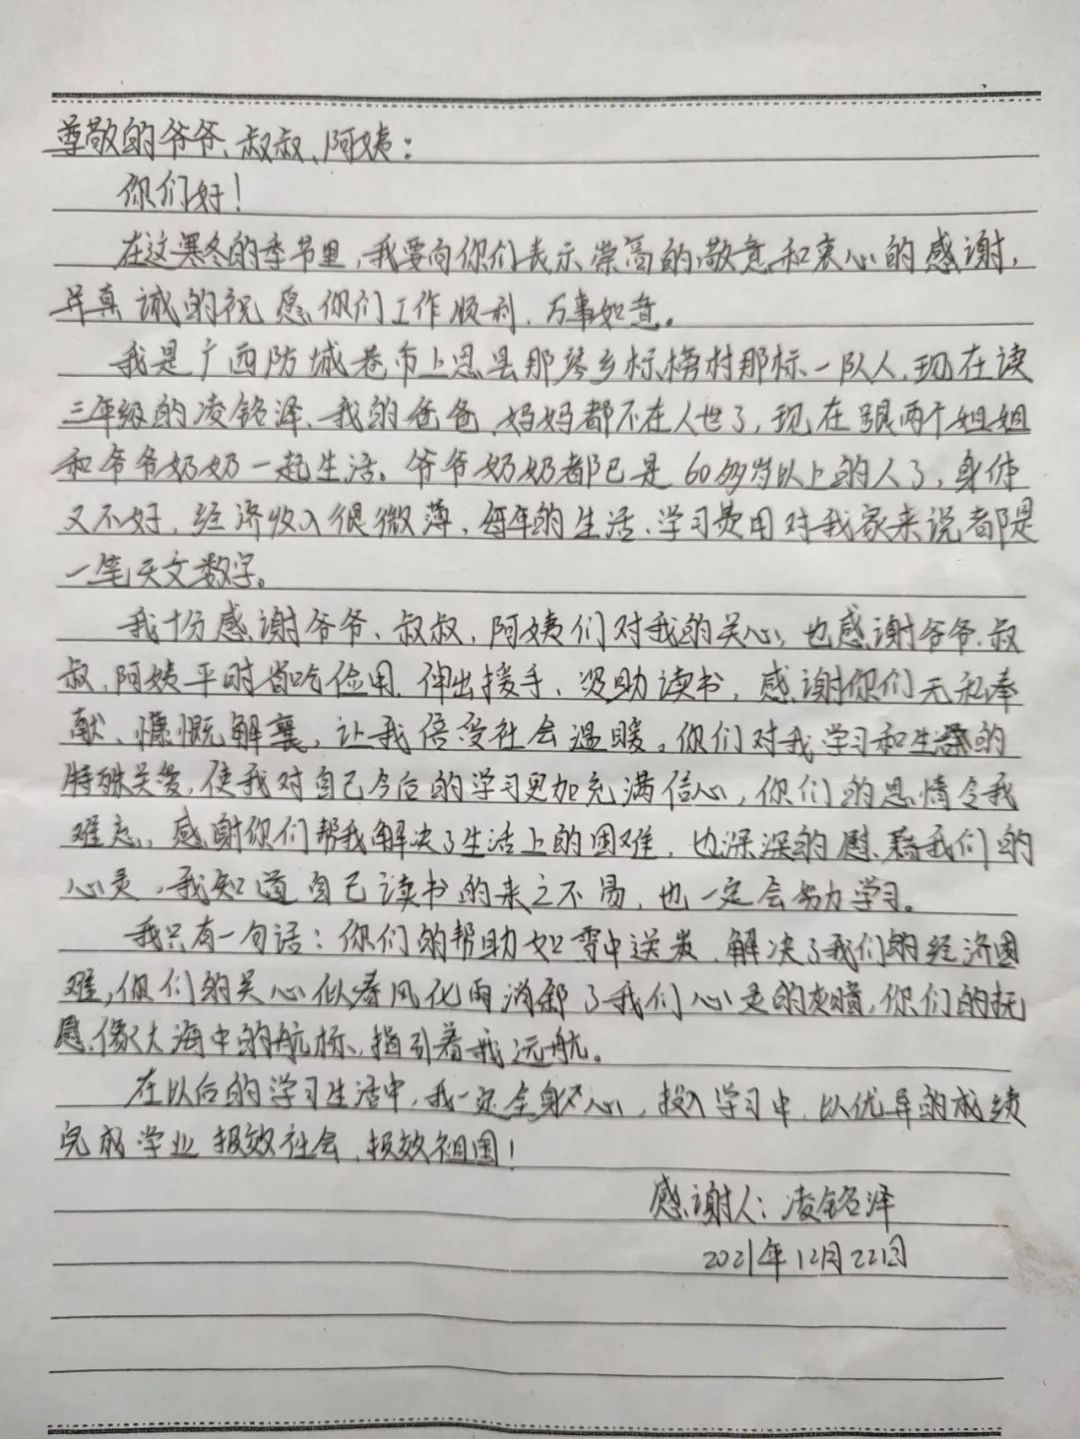 尊敬的爷爷、叔叔、阿姨：
你们好！
在这寒冬的季节里，我要向你们表示崇高的敬意和衷心的感谢，
并真诚的祝愿你们工作顺利，万事如意。
我是广西防城港市上思县那琴乡标榜村那标一队人，现在读
三年级的凌铭泽、我的爸爸、妈妈都不在人世了，现在跟两个姐姐
和爷爷奶奶一起生活。爷爷奶奶都已是60多岁以上的人了，身体
又不好，经济收入很微薄，每年的生活、学习费用对我家来说都是
一笔天文数字。
我十分感谢爷爷、叔叔、阿姨们对我的关心，也感谢爷爷、叔
叔、阿姨平时省吃俭用，伸出援手、资助读书，感谢你们无私奉
献、慷慨解囊，让我倍受社会温暖。你们对我学习和生活的
特殊关爱，使我对自己今后的学习更加充满信心，你们的恩情令我
难忘，感谢你们帮我解决了生活上的困难，也深深的慰藉我们的
心灵，我知道自己读书的来之不易，也一定会努力学习。
我只有一句话：你们的帮助如雪中送炭，解决了我们的经济困
难，你们的关心似春风化雨消卸了我们心灵的灰暗，你们的抚
慰像大海中的航标，指引着我远航。
在以后的学习生活中，我一定全身心，投入学习中，以优异的成绩
完成学业报效社会，报效祖国！
感谢人：凌铭泽
2021年12月22日